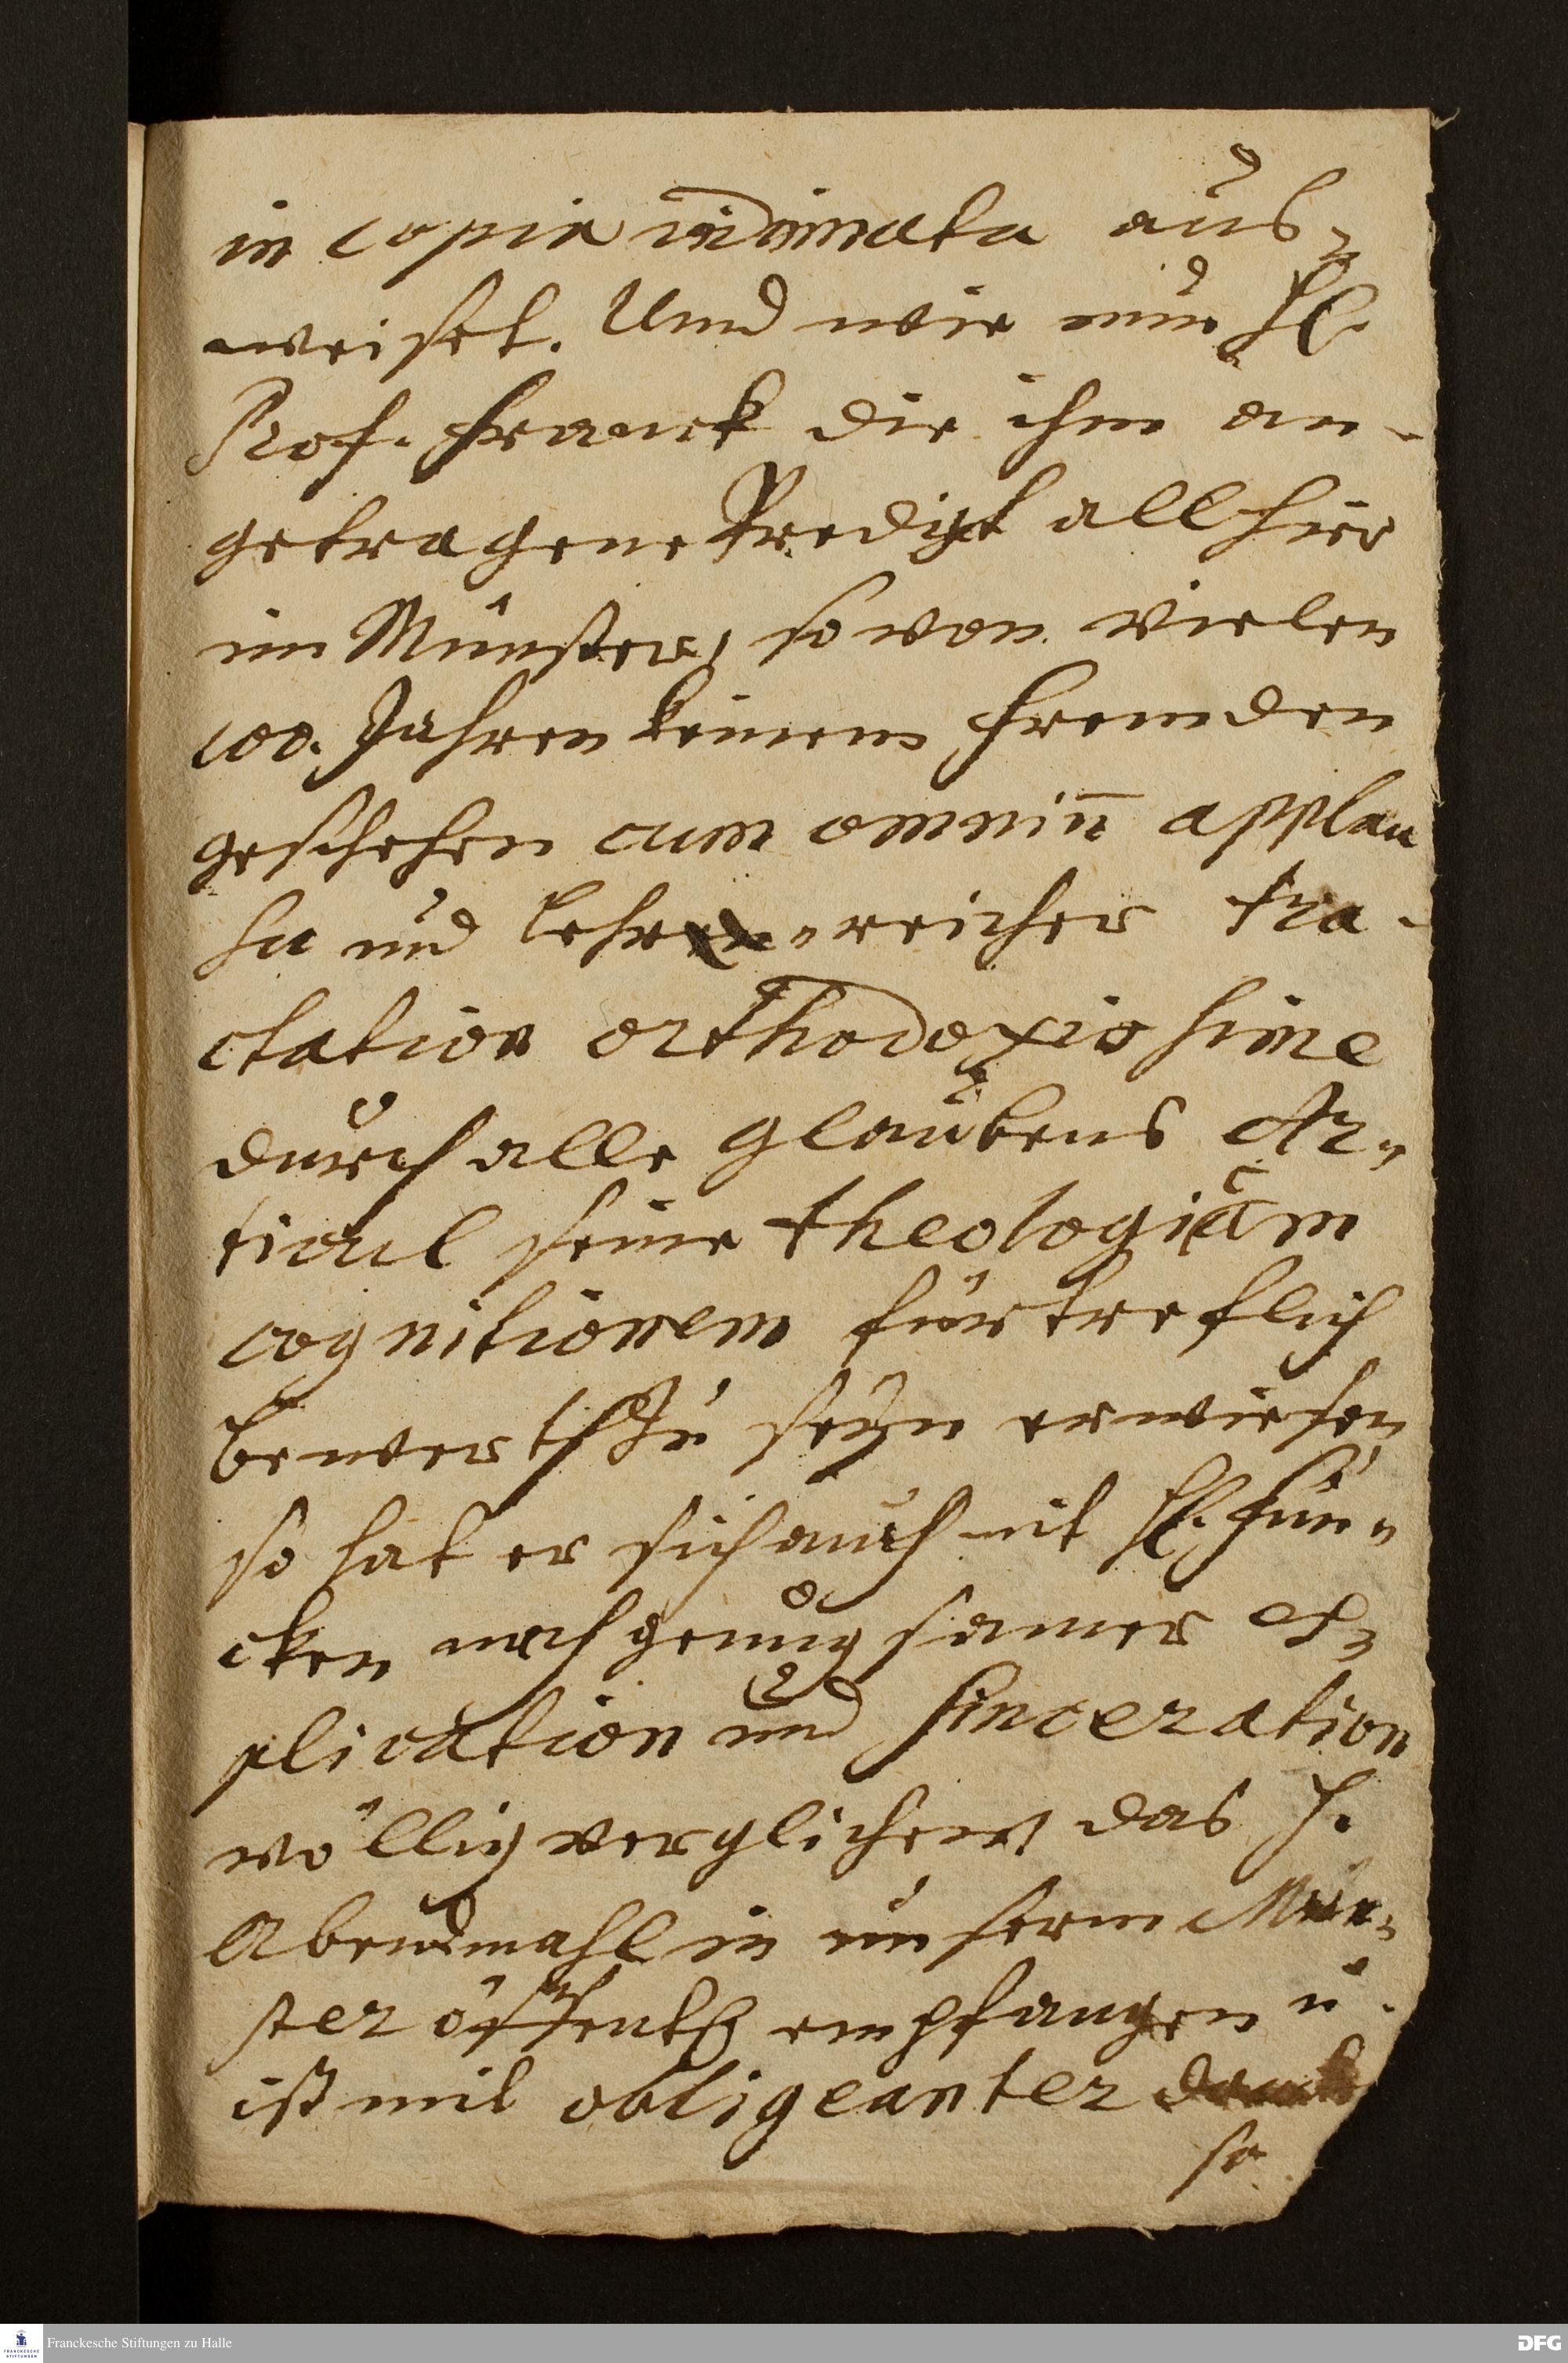 in copia vidimata aus-
weiset. Und wie nun H.
Prof. Franck die ihm an-
getragene Predigt allhier
im Münster, so von vielen
100. Jahren keinem Fremden
geschehen cum omniū applau
su und Lehr-reicher tra-
ctation orthodoxissime
durch alle Glaubens Ar-
ticul seine theologicam
cognitionem fürtreflich
bewert zu seyn erwiesen
so hat er sich auch mit H. Fun-
cken nach genugsamer Ex-
plication und sinceration
völlig verglichen, das H.
Abendmahl in unserm Mün-
ster öffentl. empfangen u.
ist mit obligeanter
so
Franckesche Stiftungen zu Halle
DFG